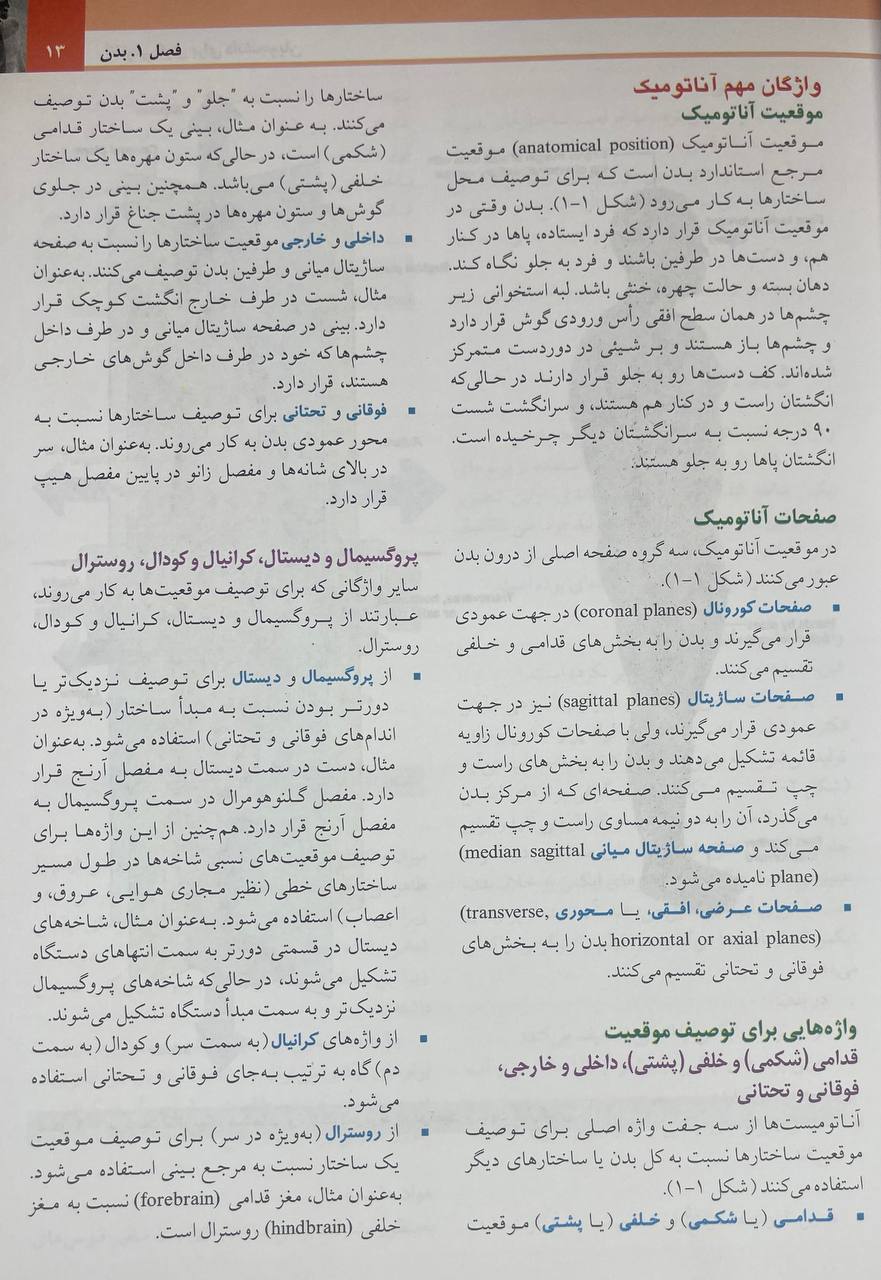 فصل ۱. بدن
۱۳
واژگان مهم آناتومیک
موقعیت آناتومیک
موقعیت آناتومیک (anatomical position) موقعیت
مرجع استاندارد بدن است که برای توصیف محل
ساختارها به کار می‌رود (شکل ۱-۱). بدن وقتی در
موقعیت آناتومیک قرار دارد که فرد ایستاده، پاها در کنار
هم، و دست‌ها در طرفین باشند و فرد به جلو نگاه کند.
دهان بسته و حالت چهره، خنثی باشد. لبه استخوانی زیر
چشم‌ها در همان سطح افقی رأس ورودی گوش قرار دارد
و چشم‌ها باز هستند و بر شیئی در دوردست متمرکز
شده‌اند. کف دست‌ها رو به جلو قرار دارند در حالی‌که
انگشتان راست و در کنار هم هستند، و سرانگشت شست
۹۰ درجه نسبت به سرانگشتان دیگر چرخیده است.
انگشتان پاها رو به جلو هستند.
صفحات آناتومیک
در موقعیت آناتومیک، سه گروه صفحه اصلی از درون بدن
عبور می‌کنند (شکل ۱-۱).
▪ صفحات کورونال (coronal planes) در جهت عمودی
قرار می‌گیرند و بدن را به بخش‌های قدامی و خلفی
تقسیم می‌کنند.
▪ صفحات ساژیتال (sagittal planes) نیز در جهت
عمودی قرار می‌گیرند، ولی با صفحات کورونال زاویه
قائمه تشکیل می‌دهند و بدن را به بخش‌های راست و
چپ تقسیم می‌کنند. صفحه‌ای که از مرکز بدن
می‌گذرد، آن را به دو نیمه مساوی راست و چپ تقسیم
می‌کند و صفحه ساژیتال میانی (median sagittal
plane) نامیده می‌شود.
▪ صفحات عرضی، افقی، یا محوری (transverse,
horizontal or axial planes) بدن را به بخش‌های
فوقانی و تحتانی تقسیم می‌کنند.
واژه‌هایی برای توصیف موقعیت
قدامی (شکمی) و خلفی (پشتی)، داخلی و خارجی،
فوقانی و تحتانی
آناتومیست‌ها از سه جفت واژه اصلی برای توصیف
موقعیت ساختارها نسبت به کل بدن یا ساختارهای دیگر
استفاده می‌کنند (شکل ۱-۱).
▪ قدامی (یا شکمی) و خلفی (یا پشتی) موقعیت
ساختارها را نسبت به "جلو" و "پشت" بدن توصیف
می‌کنند. به عنوان مثال، بینی یک ساختار قدامی
(شکمی) است، در حالی‌که ستون مهره‌ها یک ساختار
خلفی (پشتی) می‌باشد. همچنین بینی در جلوی
گوش‌ها و ستون مهره‌ها در پشت جناغ قرار دارد.
▪ داخلی و خارجی موقعیت ساختارها را نسبت به صفحه
ساژیتال میانی و طرفین بدن توصیف می‌کنند. به‌عنوان
مثال، شست در طرف خارج انگشت کوچک قرار
دارد. بینی در صفحه ساژیتال میانی و در طرف داخل
چشم‌ها که خود در طرف داخل گوش‌های خارجی
هستند، قرار دارد.
▪ فوقانی و تحتانی برای توصیف ساختارها نسبت به
محور عمودی بدن به کار می‌روند. به‌عنوان مثال، سر
در بالای شانه‌ها و مفصل زانو در پایین مفصل هیپ
قرار دارد.
پروگسیمال و دیستال، کرانیال و کودال، روسترال
سایر واژگانی که برای توصیف موقعیت‌ها به کار می‌روند،
عبارتند از پروگسیمال و دیستال، کرانیال و کودال،
روسترال.
▪ از پروگسیمال و دیستال برای توصیف نزدیک‌تر یا
دورتر بودن نسبت به مبدأ ساختار (به‌ویژه در
اندام‌های فوقانی و تحتانی) استفاده می‌شود. به‌عنوان
مثال، دست در سمت دیستال به مفصل آرنج قرار
دارد. مفصل گلنوهومرال در سمت پروگسیمال به
مفصل آرنج قرار دارد. هم‌چنین از این واژه‌ها برای
توصیف موقعیت‌های نسبی شاخه‌ها در طول مسیر
ساختارهای خطی (نظیر مجاری هوایی، عروق، و
اعصاب) استفاده می‌شود. به‌عنوان مثال، شاخه‌های
دیستال در قسمتی دورتر به سمت انتهاهای دستگاه
تشکیل می‌شوند، در حالی‌که شاخه‌های پروگسیمال
نزدیک‌تر و به سمت مبدأ دستگاه تشکیل می‌شوند.
▪ از واژه‌های کرانیال (به سمت سر) و کودال (به سمت
دم) گاه به ترتیب به‌جای فوقانی و تحتانی استفاده
می‌شود.
▪ از روسترال (به‌ویژه در سر) برای توصیف موقعیت
یک ساختار نسبت به مرجع بینی استفاده می‌شود.
به‌عنوان مثال، مغز قدامی (forebrain) نسبت به مغز
خلفی (hindbrain) روسترال است.